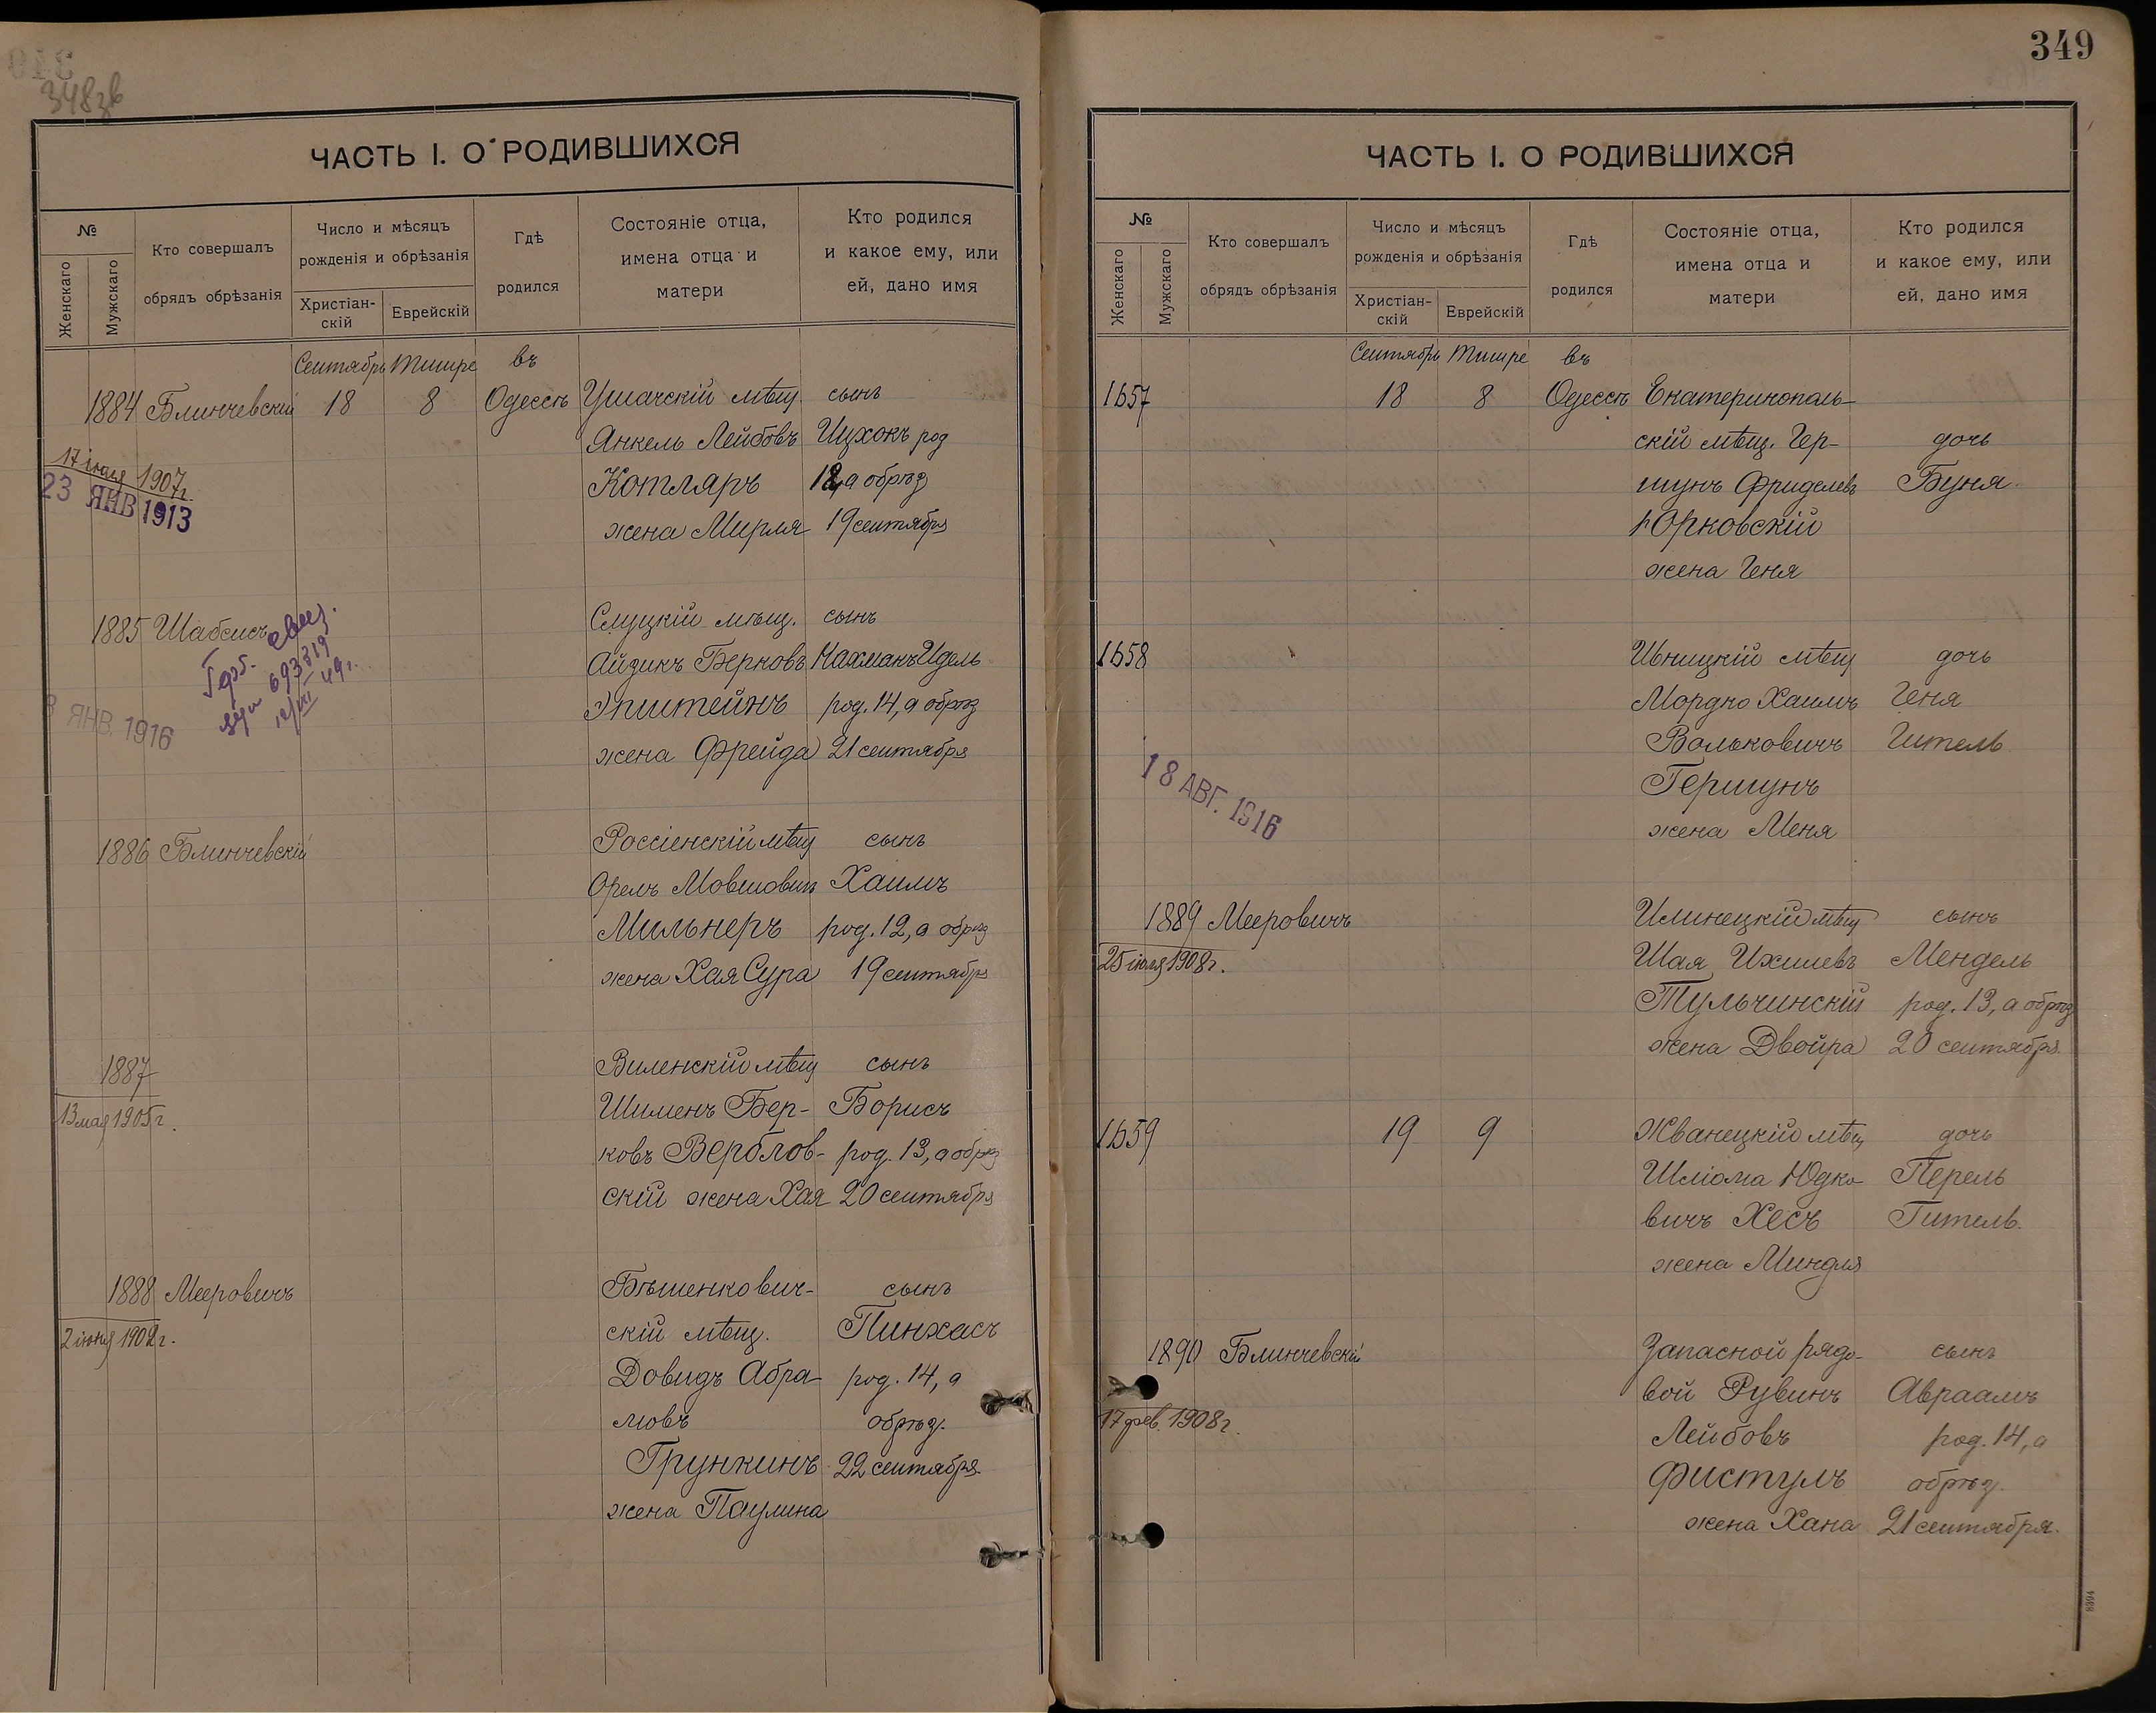 348зв
ЧАСТЬ I. О РОДИВШИХСЯ
№
Женскаго
Мужскаго
Кто совершалъ
обрядъ обрѣзанія
Число и мѣсяцъ
рожденія и обрѣзанія
Христіан-
скій
Еврейскій
Гдѣ
родился
Состояніе отца,
имена отца и
матери
Кто родился
и какое ему, или
ей, дано имя
Сентябрь Тишре въ
1884 Блинчевскій 18 8 Одессѣ Ушачскій мѣщ. сынъ
Янкель Лейбовъ Ицхокъ род
Котляръ 12, а обрѣз
жена Мирля 19 сентября
17 іюля 1907 г.
23 ЯНВ 1913
1885 Шабсисъ Слуцкій мѣщ. сынъ
Айзикъ Берковъ Нахманъ Идель
Эпштейнъ род. 14, а обрѣз
жена Фрейда 21 сентября
693319
12/VII 49 г.
ЯНВ. 1916
1886 Блинчевскій Россіенскій мѣщ сынъ
Орель Мовшовичъ Хаимъ
Мильнеръ род. 12, а обрѣз
жена Хая Сура 19 сентября
1887 Виленскій мѣщ сынъ
Шименъ Бер- Борисъ
ковъ Верблов- род. 13, а обрѣз
скій жена Хая 20 сентября
13 мая 1905 г.
1888 Мееровичъ Бѣшенкович- сынъ
скій мѣщ. Пинхасъ
Довидъ Абра- род. 14, а
мовъ обрѣз.
Грункинъ 22 сентября
жена Паулина
2 іюня 1902 г.
349
ЧАСТЬ I. О РОДИВШИХСЯ
№
Женскаго
Мужскаго
Кто совершалъ
обрядъ обрѣзанія
Число и мѣсяцъ
рожденія и обрѣзанія
Христіан-
скій
Еврейскій
Гдѣ
родился
Состояніе отца,
имена отца и
матери
Кто родился
и какое ему, или
ей, дано имя
Сентябрь Тишре въ
1657 18 8 Одессѣ Екатеринополь-
скій мѣщ. Гер- дочь
шунъ Фриделевъ Буня
Юрковскій
жена Геня
1658 Ивницкій мѣщ дочь
Мордко Хаимъ Геня
Вольковичъ Гитель
Гершунъ
жена Меня
18 АВГ. 1916
1889 Мееровичъ Илинецкій мѣщ сынъ
Шая Ихилевъ Мендель
Тульчинскій род. 13, а обрѣз
жена Двойра 20 сентября.
25 іюля 1908 г.
1659 19 9 Жванецкій мѣщ дочь
Шліома Юдко- Перель
вичъ Хесъ Гитель.
жена Миндля
1890 Блинчевскій Запасной рядо- сынъ
вой Рувинъ Авраамъ
Лейбовъ род. 14, а
Фистулъ обрѣз.
жена Хана 21 сентября.
17 фев. 1908 г.